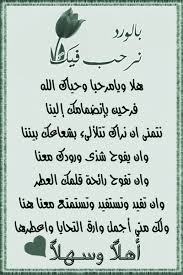 بالورد
نرحب فيك
هلا ويامرحبا وحياك الله
فرحين بإنضمامك إلينا
نتمنى ان نراك تتلألئ بشعاعك بيننا
وان يفوح شذى ورودك معنا
وان تفوح رائحة قلمك العطر
وان تفيد وتستفيد وتستمتع معنا هنا
ولك منا أجمل وارق التحايا واعطرها
أهلاً وسهلاً